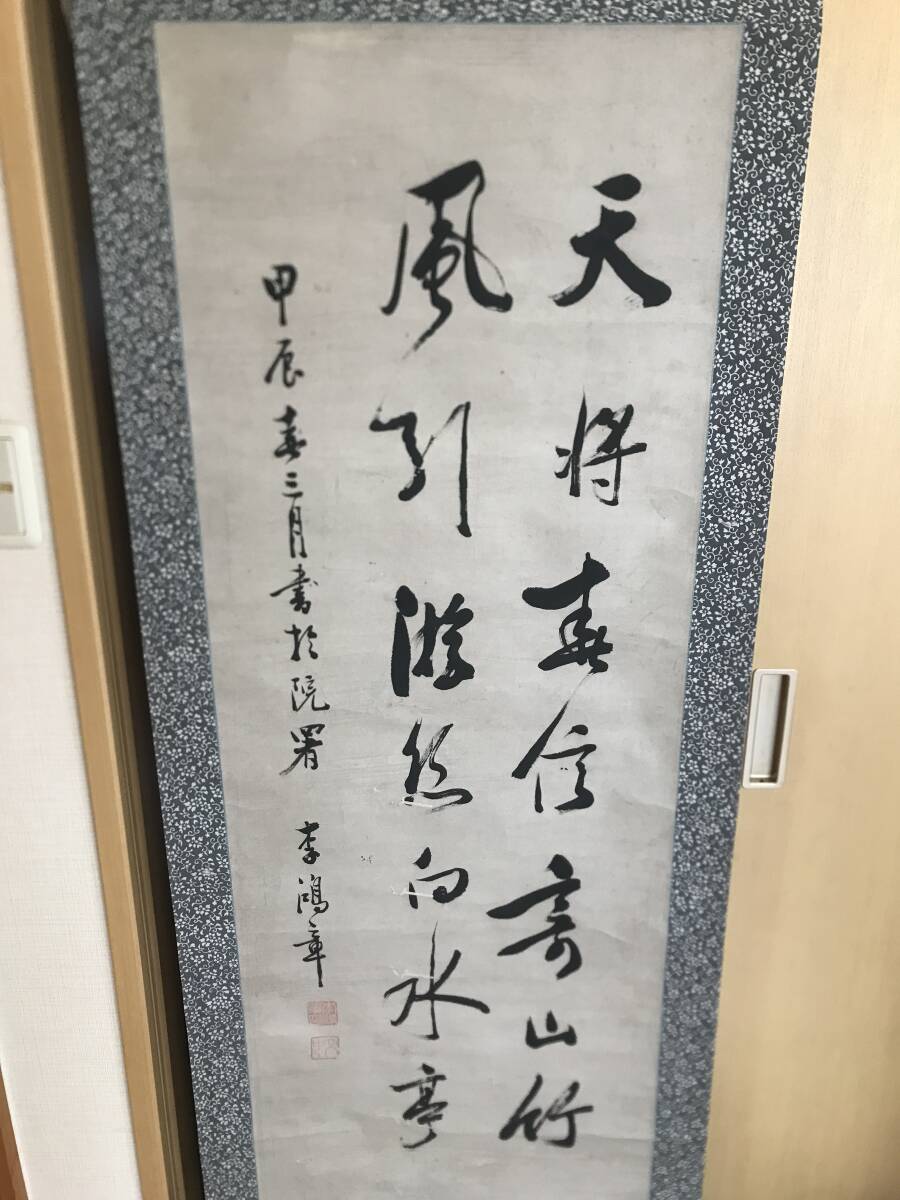 天将春信寄山竹
風引游絲向水亭
甲辰春三月書於院署 李鴻章